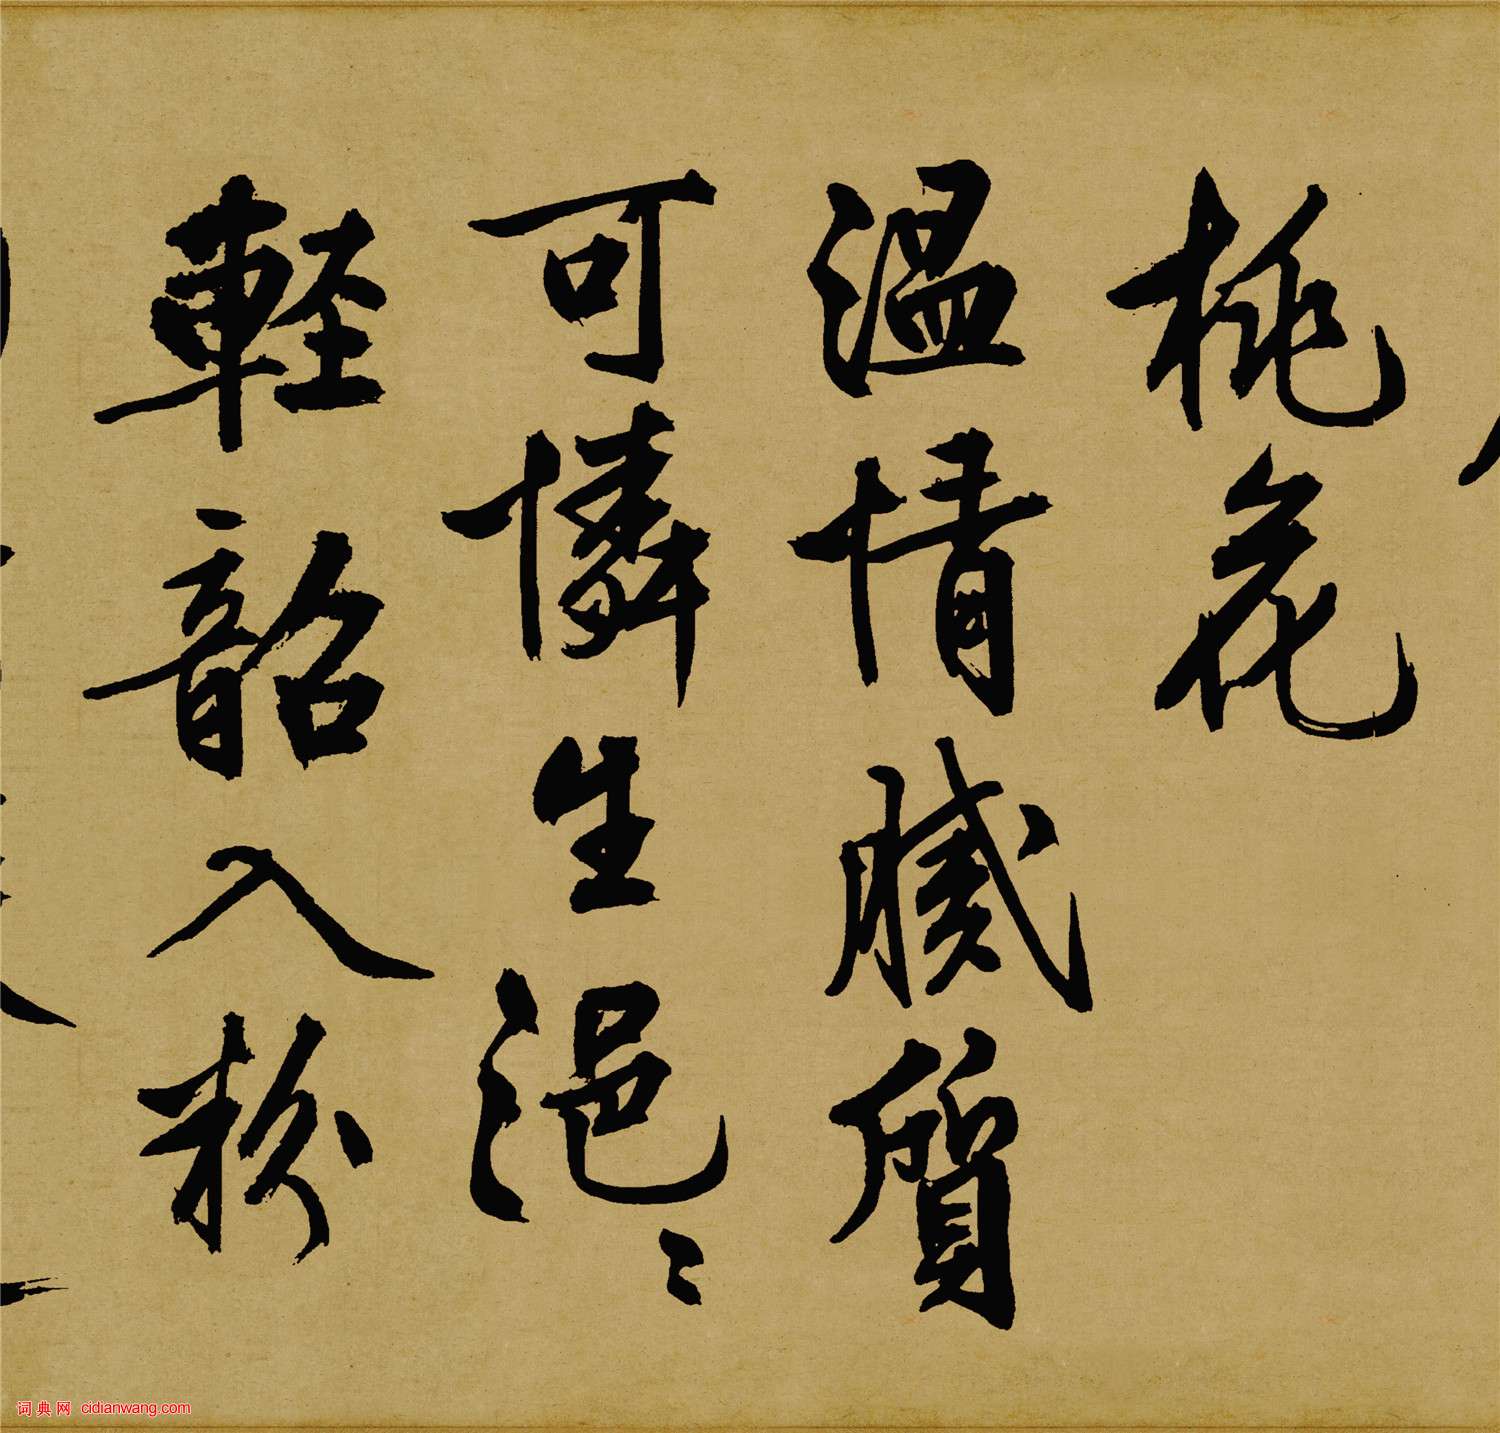 桃花
溫情膩質
可憐生浥〻
輕韶入粉
词典网 cidianwang.com